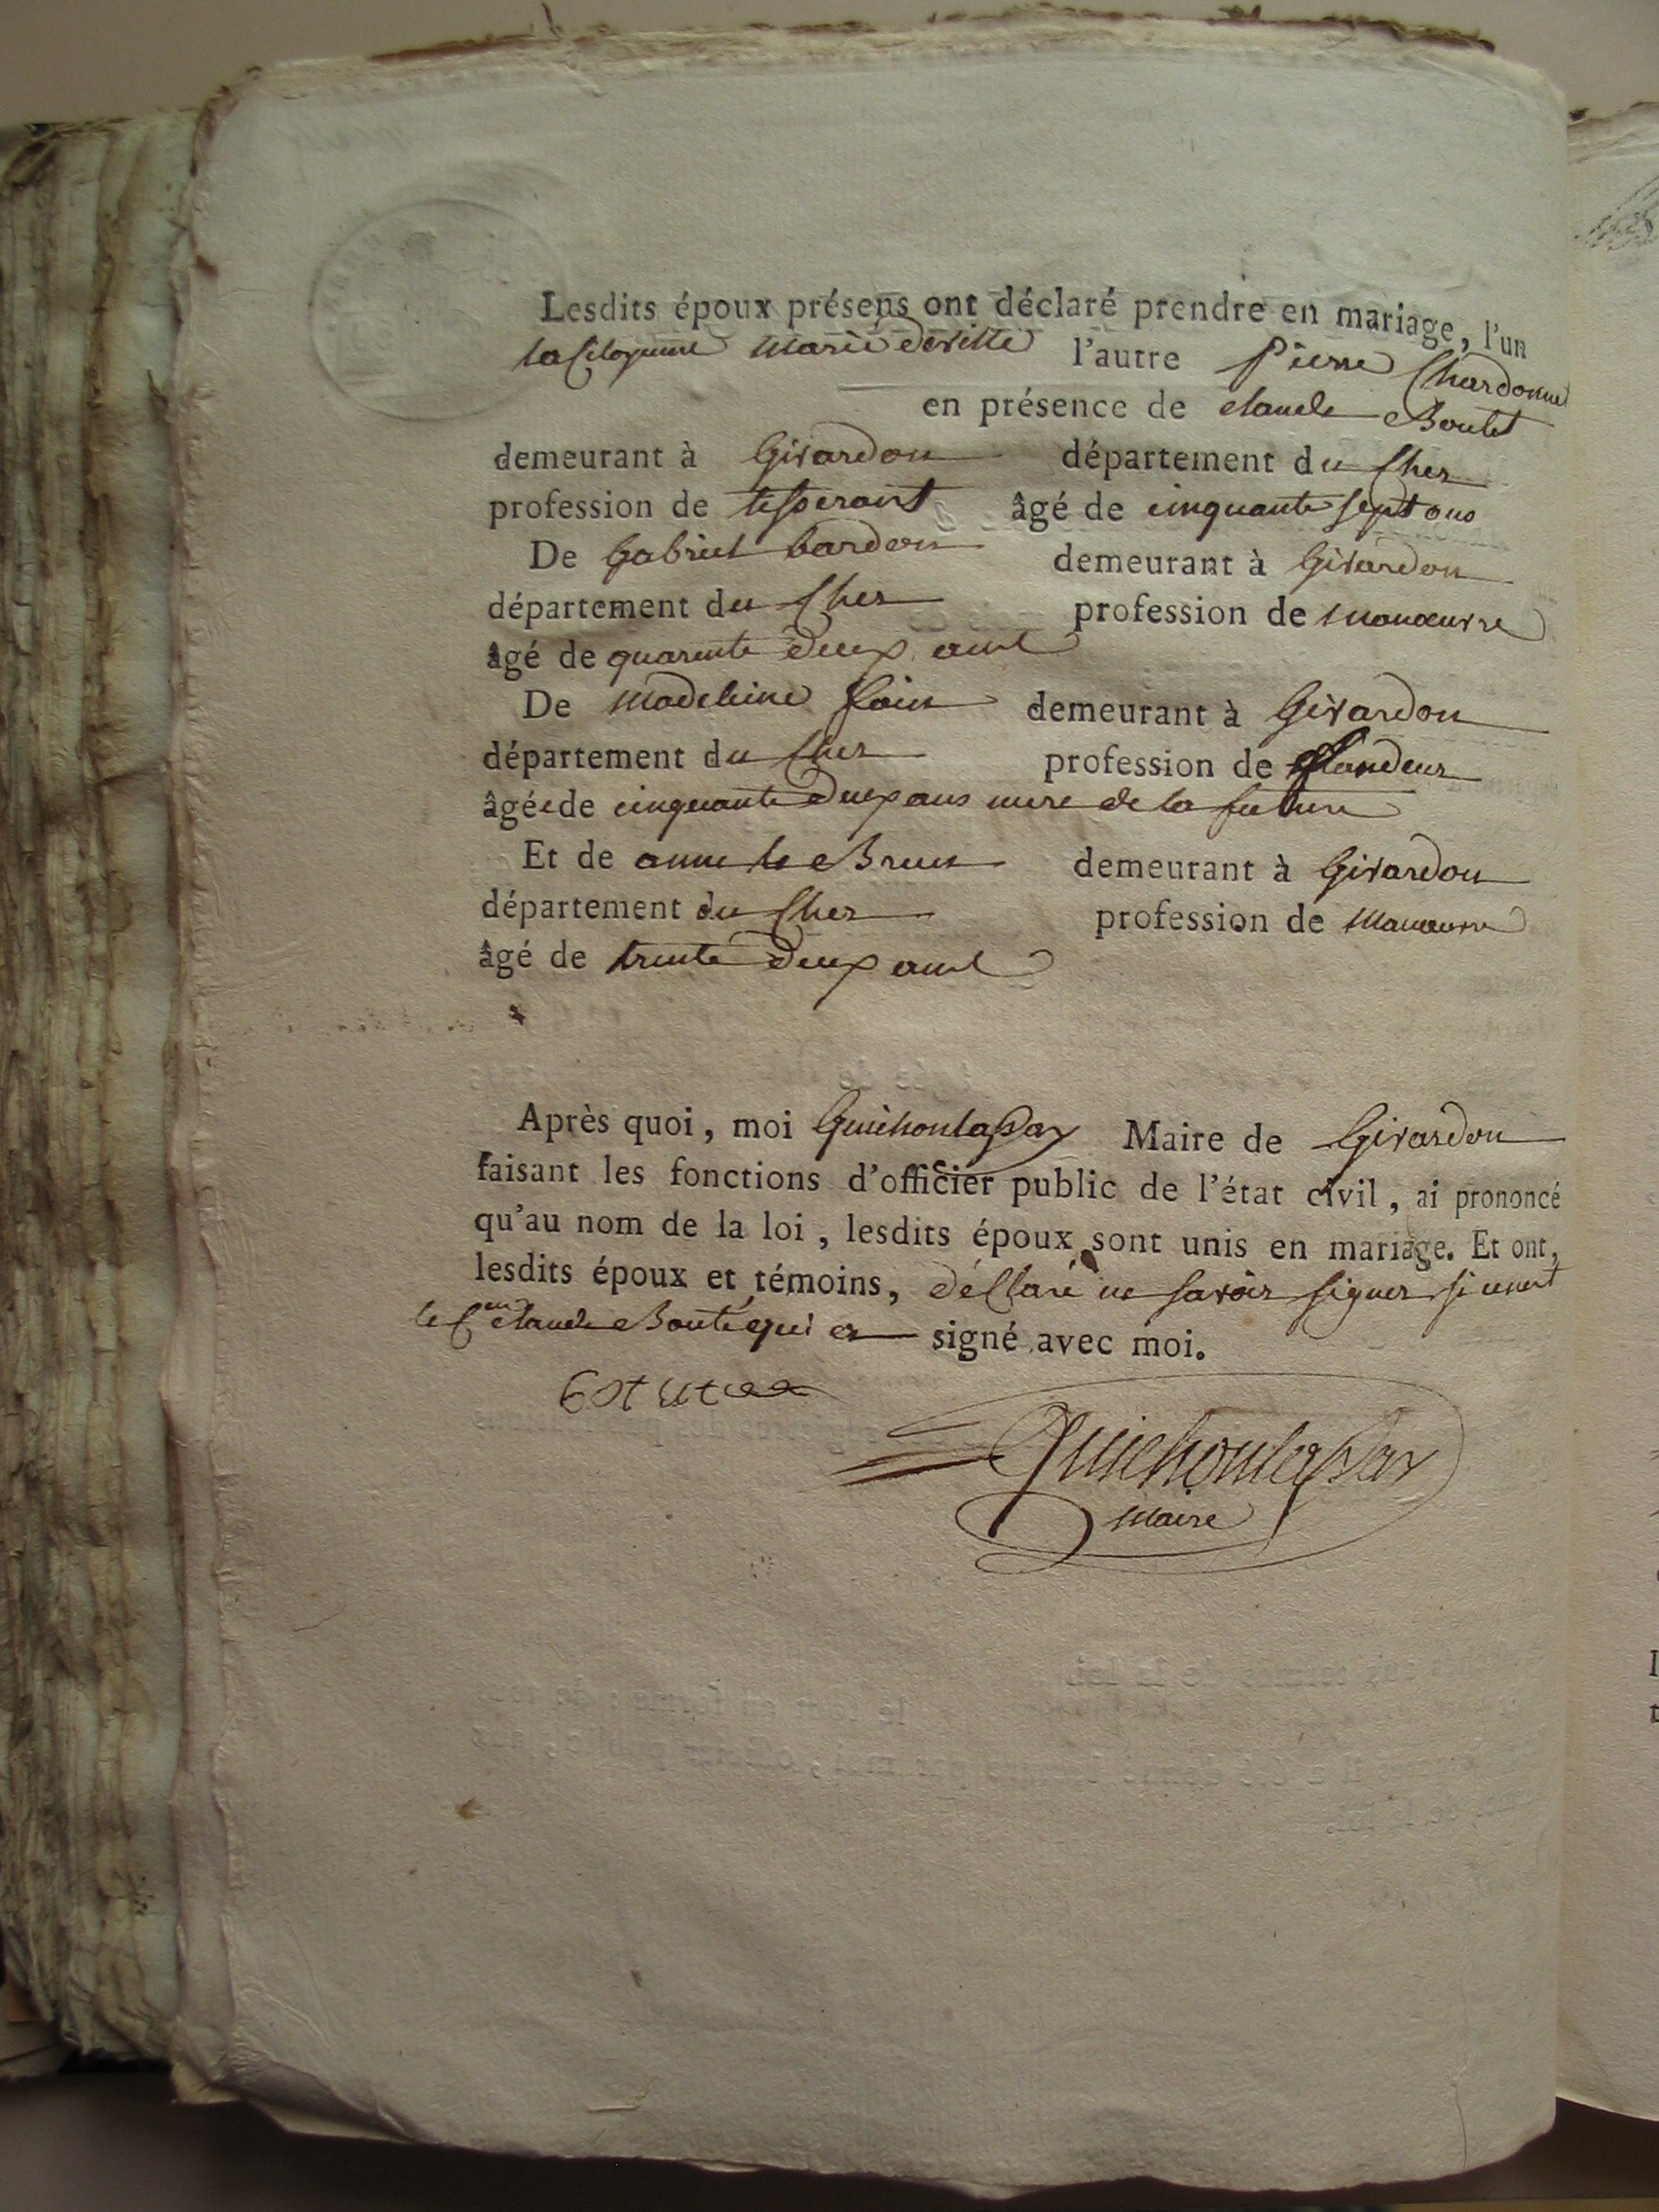 Lesdits époux présens ont déclaré prendre en mariage, l'un
la Citoyenne Marie deville l'autre Pierre Chardonnet
en présence de claude Boutet
demeurant à Givardon département du Cher
profession de tisserant âgé de cinquante sept ans
De Gabriel bardon demeurant à Givardon
département du Cher profession de manœuvre
âgé de quarente deux ans
De Madeleine demeurant à Givardon
département du Cher profession de
âgée de cinquante deux ans mere de la future
Et de anne le Brun demeurant à Givardon
département du Cher profession de Manœuvre
âgé de trente deux ans
Après quoi, moi Maire de Givardon
faisant les fonctions d'officier public de l'état civil, ai prononcé
qu'au nom de la loi, lesdits époux sont unis en mariage. Et ont,
lesdits époux et témoins, déclaré ne savoir signer
le Cen claude Boutet qui a signé avec moi.
maire